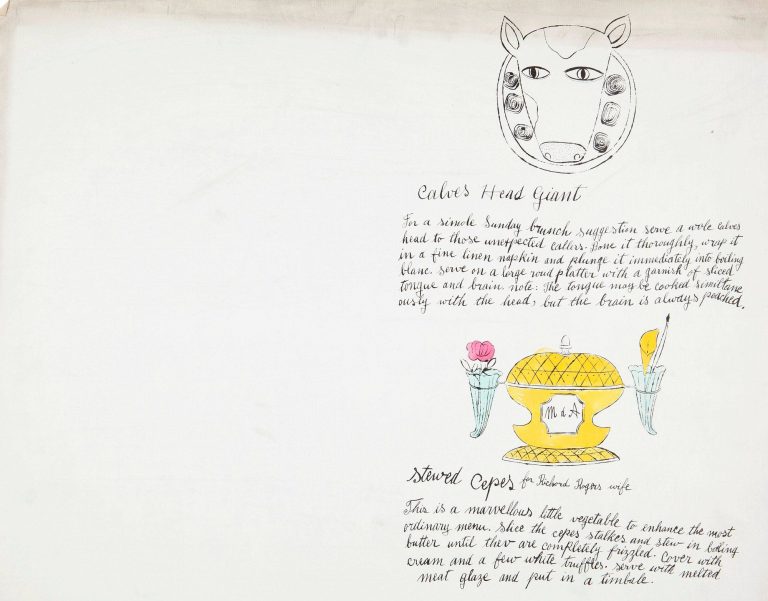 Calves Head Giant
For a simple Sunday brunch suggestion serve a wole calves
head to those unexpected callers. Bone it thoroughly, wrap it
in a fine linen napkin and plunge it immediately into boiling
blanc. Serve on a large roud platter with a garnish of sliced
tongue and brain. note: The tongue may be cooked similtane
ously with the head, but the brain is always poached.
M d A
Stewed Cepes for Richard Rogers wife
This is a marvellous little vegetable to enhance the most
ordinary menu. Slice the cepes stalkes and stew in boiling
butter until they are completely frizzled. Cover with
cream and a few white truffles. Serve with melted
meat glaze and put in a timbale.